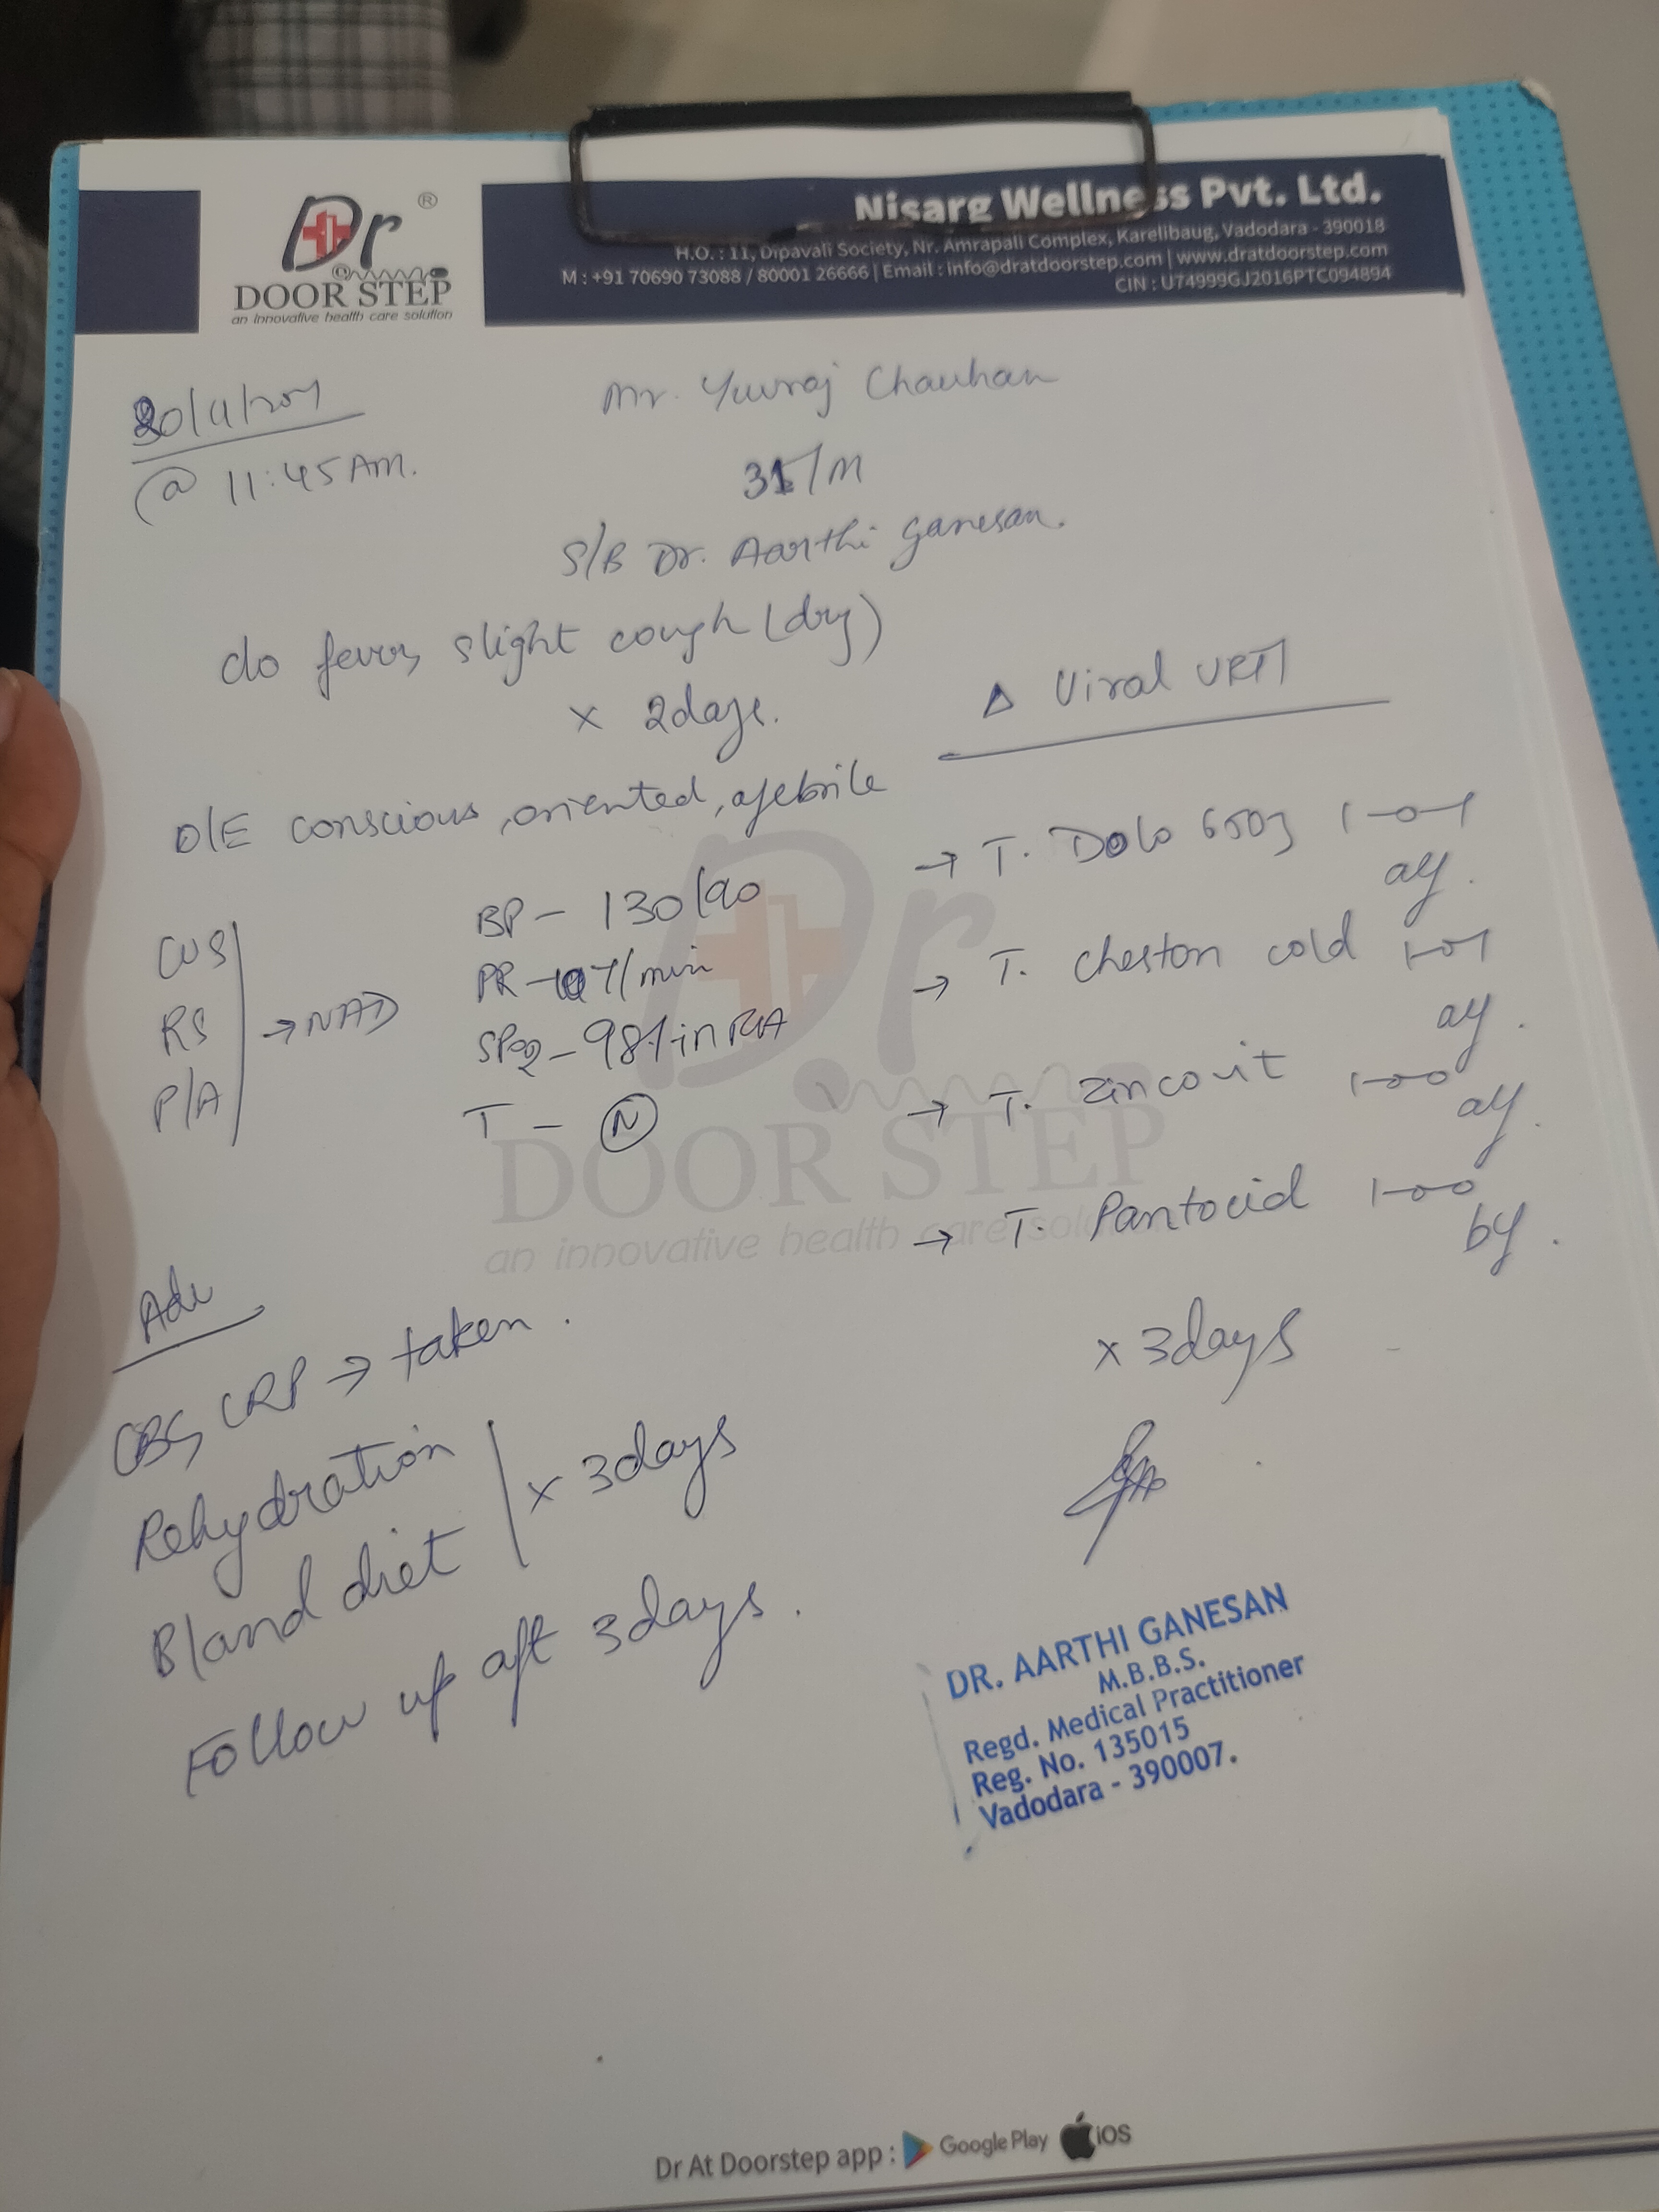 Dr ®
DOOR STEP
an innovative health care solution
Nisarg Wellness Pvt. Ltd.
H.O. : 11, Dipavali Society, Nr. Amrapali Complex, Karelibaug, Vadodara - 390018
M : +91 70690 73088 / 80001 26666 | Email : info@dratdoorstep.com | www.dratdoorstep.com
CIN : U74999GJ2016PTC094894
@ 11:45 AM.
Mr. Yuvraj Chauhan
31/M
S/B Dr. Aarthi Ganesan.
c/o fever, slight cough (dry)
x 2days.
Δ Viral URTI
O/E conscious, oriented, afebrile
BP - 130/90
PR - 107/min
SPO2 - 98% in RA
T - N
CVS
RS
P/A
→ NAD
→ T. Dolo 650g 1-0-1
af.
→ T. Cheston cold 1-0-1
af.
→ T. Zincovit 1-0-0
af.
→ T. Pantocid 1-0-0
bf.
x 3days
Adv
CBC, CRP → taken.
Rehydration
Bland diet
x 3days
Follow up aft 3days.
DR. AARTHI GANESAN
M.B.B.S.
Regd. Medical Practitioner
Reg. No. 135015
Vadodara - 390007.
Dr
DOOR STEP
an innovative health care solution
Dr At Doorstep app : Google Play iOS